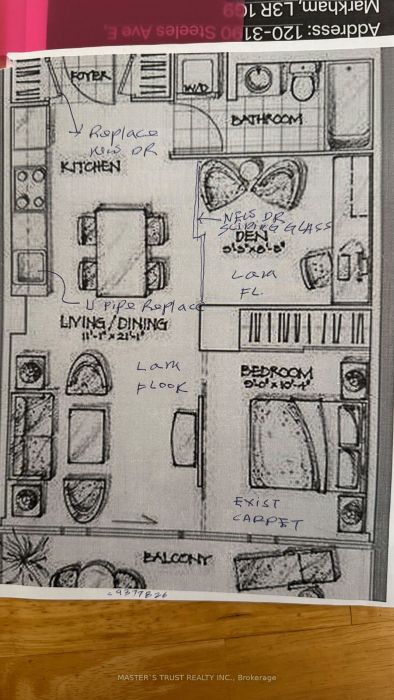 Address: 120-31
90 Steeles Ave E,
Markham, L3R 1G9
FOYER
W/D
BATHROOM
Replace
New DR
KITCHEN
NEW DR
SLIDING GLASS
DEN
Lam
FL.
U Pipe Replace
LIVING/DINING
11'-1" x 21'-1"
Lam
FLOOR
BEDROOM
9'-0" x 10'-4"
EXIST
CARPET
BALCONY
MASTER`S TRUST REALTY INC., Brokerage